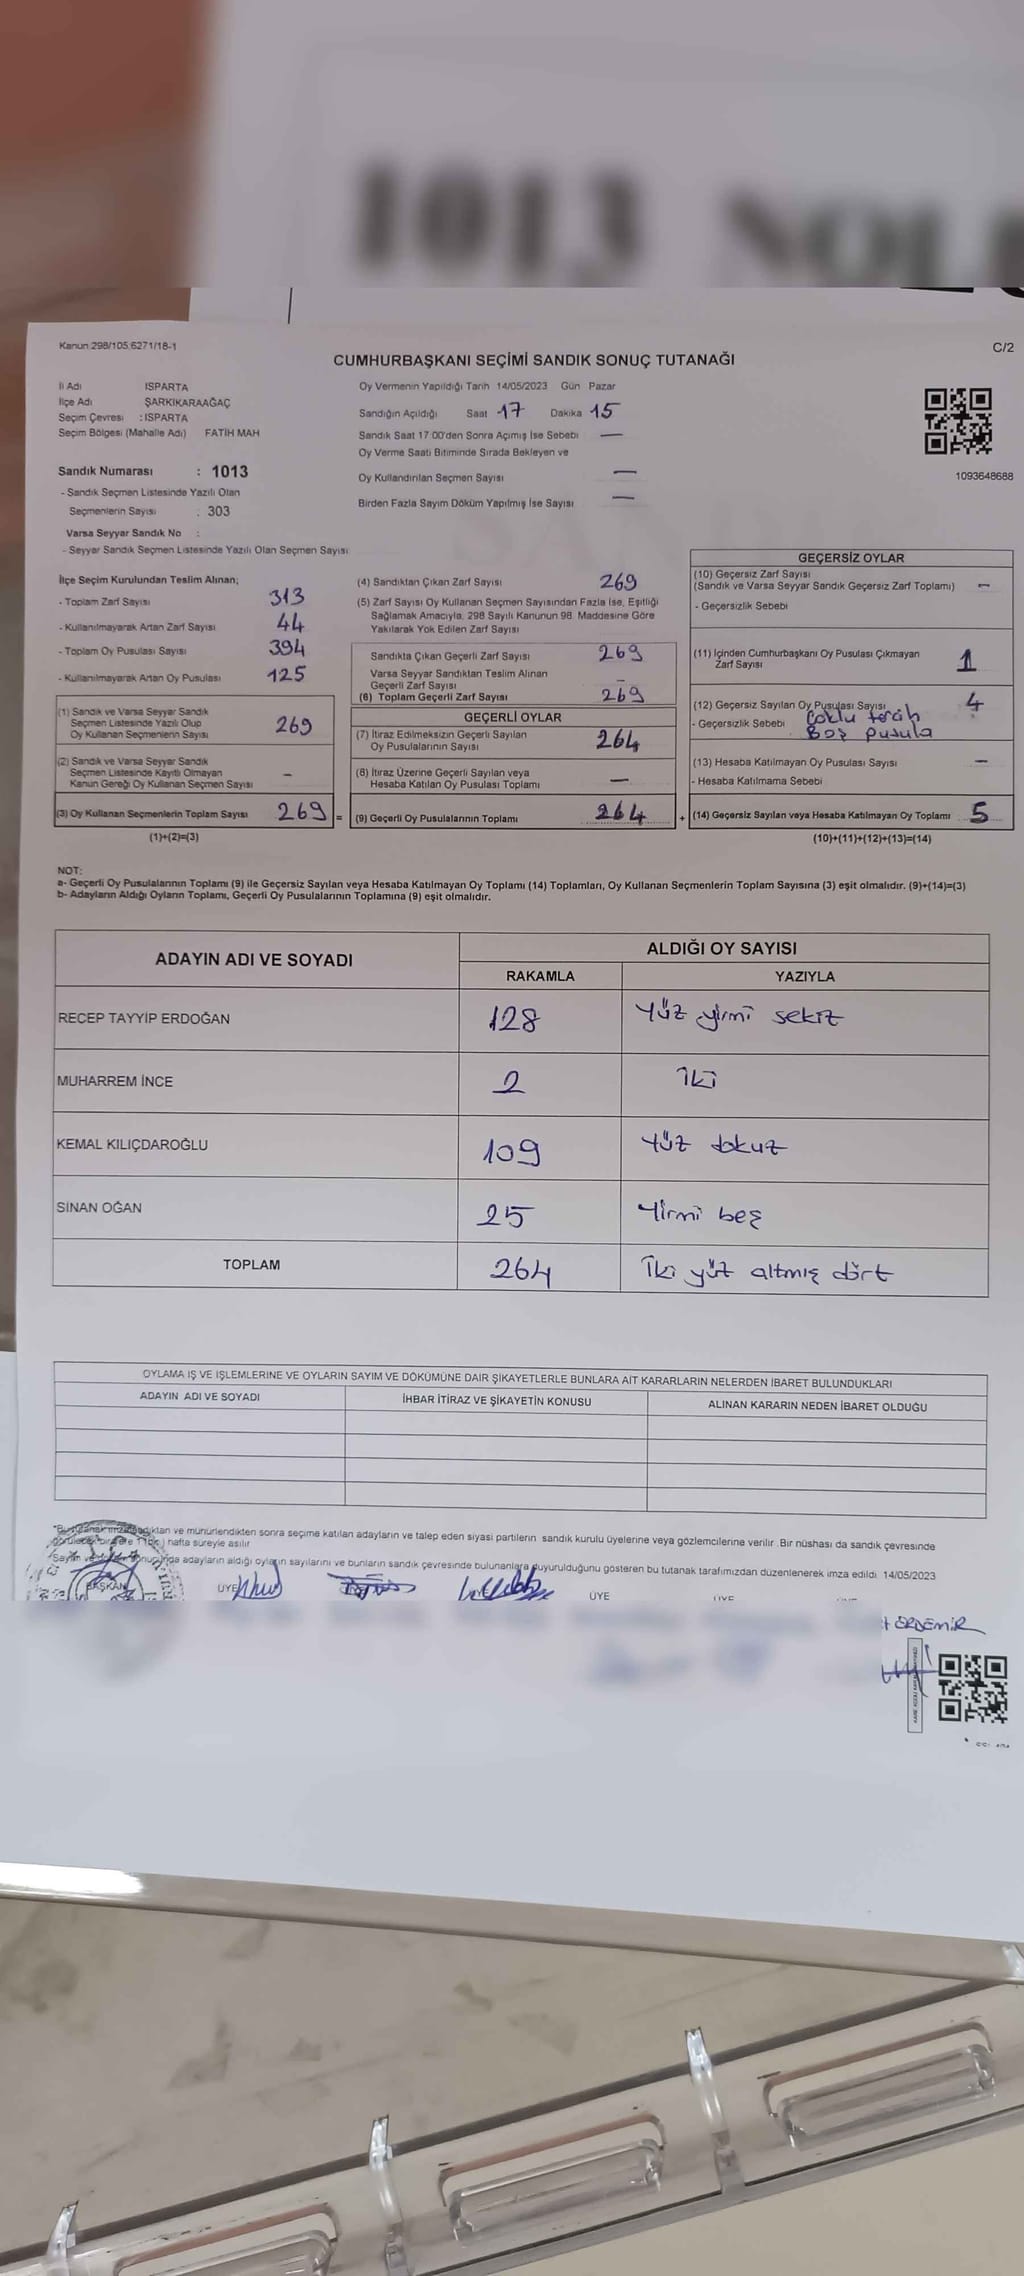 1013 NOL
Kanun:298/105.6271/18-1
C/2
CUMHURBAŞKANI SEÇİMİ SANDIK SONUÇ TUTANAĞI
İl Adı ISPARTA
İlçe Adı ŞARKİKARAAĞAÇ
Seçim Çevresi : ISPARTA
Seçim Bölgesi (Mahalle Adı) FATİH MAH
Oy Vermenin Yapıldığı Tarih 14/05/2023 Gün Pazar
Sandığın Açıldığı Saat 17 Dakika 15
Sandık Saat 17:00'den Sonra Açımış İse Sebebi —
Oy Verme Saati Bitiminde Sırada Bekleyen ve
Oy Kullandırılan Seçmen Sayısı —
Birden Fazla Sayım Döküm Yapılmış İse Sayısı —
1093648688
Sandık Numarası : 1013
- Sandık Seçmen Listesinde Yazılı Olan
Seçmenlerin Sayısı : 303
Varsa Seyyar Sandık No :
- Seyyar Sandık Seçmen Listesinde Yazılı Olan Seçmen Sayısı
İlçe Seçim Kurulundan Teslim Alınan;
- Toplam Zarf Sayısı 313
- Kullanılmayarak Artan Zarf Sayısı 44
- Toplam Oy Pusulası Sayısı 394
- Kullanılmayarak Artan Oy Pusulası 125
(1) Sandık ve Varsa Seyyar Sandık
Seçmen Listesinde Yazılı Olup
Oy Kullanan Seçmenlerin Sayısı 269
(2) Sandık ve Varsa Seyyar Sandık
Seçmen Listesinde Kayıtlı Olmayan
Kanun Gereği Oy Kullanan Seçmen Sayısı –
(3) Oy Kullanan Seçmenlerin Toplam Sayısı 269 =
(1)+(2)=(3)
(4) Sandıktan Çıkan Zarf Sayısı 269
(5) Zarf Sayısı Oy Kullanan Seçmen Sayısından Fazla İse, Eşitliği
Sağlamak Amacıyla, 298 Sayılı Kanunun 98. Maddesine Göre
Yakılarak Yok Edilen Zarf Sayısı
Sandıkta Çıkan Geçerli Zarf Sayısı 269
Varsa Seyyar Sandıktan Teslim Alınan
Geçerli Zarf Sayısı –
(6) Toplam Geçerli Zarf Sayısı 269
GEÇERLİ OYLAR
(7) İtiraz Edilmeksizin Geçerli Sayılan
Oy Pusulalarının Sayısı 264
(8) İtiraz Üzerine Geçerli Sayılan veya
Hesaba Katılan Oy Pusulası Toplamı —
(9) Geçerli Oy Pusulalarının Toplamı 264 +
GEÇERSİZ OYLAR
(10) Geçersiz Zarf Sayısı
(Sandık ve Varsa Seyyar Sandık Geçersiz Zarf Toplamı) –
- Geçersizlik Sebebi
(11) İçinden Cumhurbaşkanı Oy Pusulası Çıkmayan
Zarf Sayısı 1
(12) Geçersiz Sayılan Oy Pusulası Sayısı 4
- Geçersizlik Sebebi Çoklu tercih
Boş pusula
(13) Hesaba Katılmayan Oy Pusulası Sayısı –
- Hesaba Katılmama Sebebi
(14) Geçersiz Sayılan veya Hesaba Katılmayan Oy Toplamı 5
(10)+(11)+(12)+(13)=(14)
NOT:
a- Geçerli Oy Pusulalarının Toplamı (9) ile Geçersiz Sayılan veya Hesaba Katılmayan Oy Toplamı (14) Toplamları, Oy Kullanan Seçmenlerin Toplam Sayısına (3) eşit olmalıdır. (9)+(14)=(3)
b- Adayların Aldığı Oyların Toplamı, Geçerli Oy Pusulalarının Toplamına (9) eşit olmalıdır.
ADAYIN ADI VE SOYADI
ALDIĞI OY SAYISI
RAKAMLA YAZIYLA
RECEP TAYYİP ERDOĞAN 128 Yüz yirmi sekiz
MUHARREM İNCE 2 İki
KEMAL KILIÇDAROĞLU 109 Yüz dokuz
SİNAN OĞAN 25 Yirmi beş
TOPLAM 264 İki yüz altmış dört
OYLAMA İŞ VE İŞLEMLERİNE VE OYLARIN SAYIM VE DÖKÜMÜNE DAİR ŞİKAYETLERLE BUNLARA AİT KARARLARIN NELERDEN İBARET BULUNDUKLARI
ADAYIN ADI VE SOYADI İHBAR İTİRAZ VE ŞİKAYETİN KONUSU ALINAN KARARIN NEDEN İBARET OLDUĞU
ve mühürlendikten sonra seçime katılan adayların ve talep eden siyasi partilerin sandık kurulu üyelerine veya gözlemcilerine verilir. Bir nüshası da sandık çevresinde
hafta süreyle asılır
adayların aldığı oyların sayılarını ve bunların sandık çevresinde bulunanlara duyurulduğunu gösteren bu tutanak tarafımızdan düzenlenerek imza edildi. 14/05/2023
BAŞKAN ÜYE ÜYE
ERDEMİR